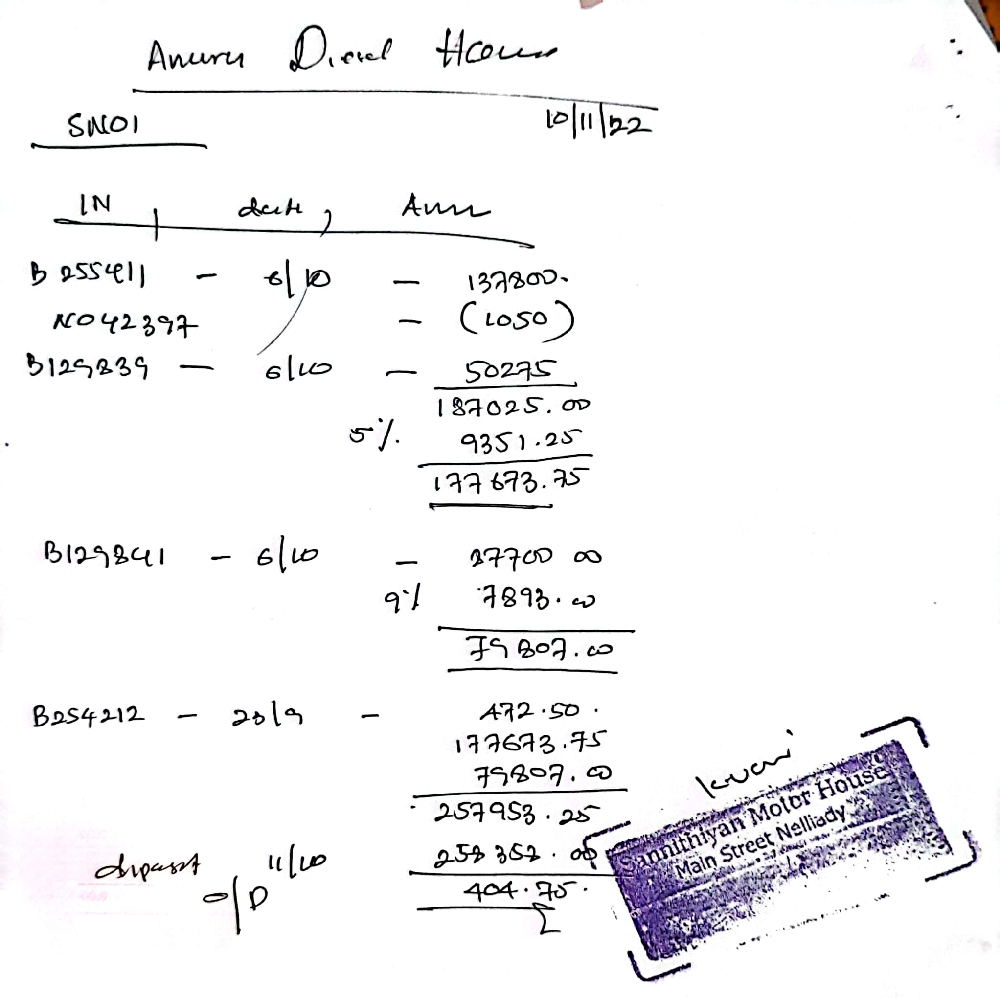 Anuru Diesel House
SN01 10/11/22
IN date, Amu
B 255411 - 6/10 - 137800.
NO42397 - (1050)
B129839 - 6/10 - 50275
187025.00
5%. 9351.25
177673.75
B129841 - 6/10 - 87700 00
9% 7893.00
79807.00
B254212 - 20/9 - 472.50.
177673.75
79807.00
257953.25
11/10
404.75.
O/D
Sannithiyan Motor House
Main Street Nelliady